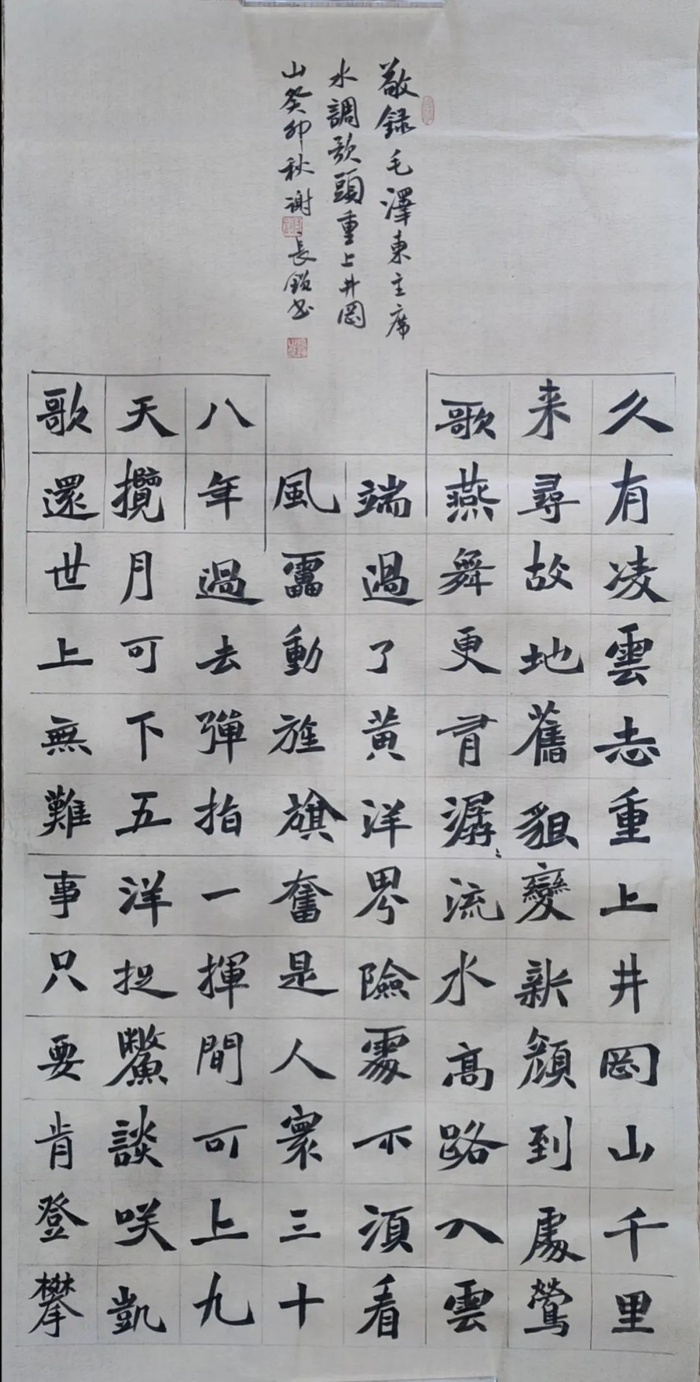 久有凌雲志重上井岡山千里
来尋故地舊貌變新顔到處鶯
歌燕舞更有潺々流水高路入雲
端過了黄洋界險處不須看
風靁動旌旗奮是人寰三十
八年過去彈指一揮間可上九
天攬月可下五洋捉鱉談咲凱
歌還世上無難事只要肯登攀
敬録毛澤東主席
水調歌頭重上井岡
山癸卯秋謝長书